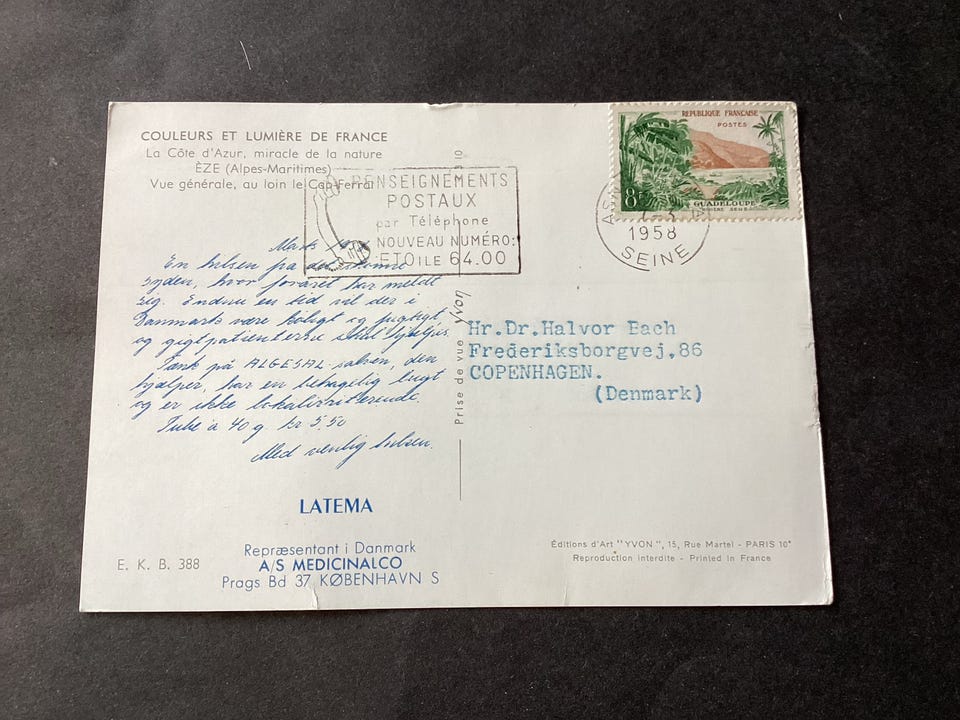 COULEURS ET LUMIÈRE DE FRANCE
La Côte d'Azur, miracle de la nature
ÈZE (Alpes-Maritimes)
Vue générale, au loin le Cap Ferrat
RENSEIGNEMENTS
POSTAUX
par Téléphone
NOUVEAU NUMÉRO:
ETOILE 64.00
REPUBLIQUE FRANÇAISE
POSTES
8F
GUADELOUPE
RIVIERE SENS
1958
SEINE
Marts
En hilsen fra det skønne
syden, hvor foråret har meldt
sig. Endnu en tid vil der i
Danmark være køligt og fugtigt
og gigtpatienterne skal hjælpes.
Tænk på ALGESAL salven, den
hjælper, har en behagelig lugt
og er ikke lokalirriterende.
Tube à 40 g kr 5.50
Med venlig hilsen.
LATEMA
Repræsentant i Danmark
A/S MEDICINALCO
Prags Bd 37 KØBENHAVN S
E. K. B. 388
Prise de vue Yvon
10
Hr.Dr.Halvor Bach
Frederiksborgvej,86
COPENHAGEN.
(Denmark)
Éditions d'Art "YVON", 15, Rue Martel - PARIS 10e
Reproduction interdite - Printed in France